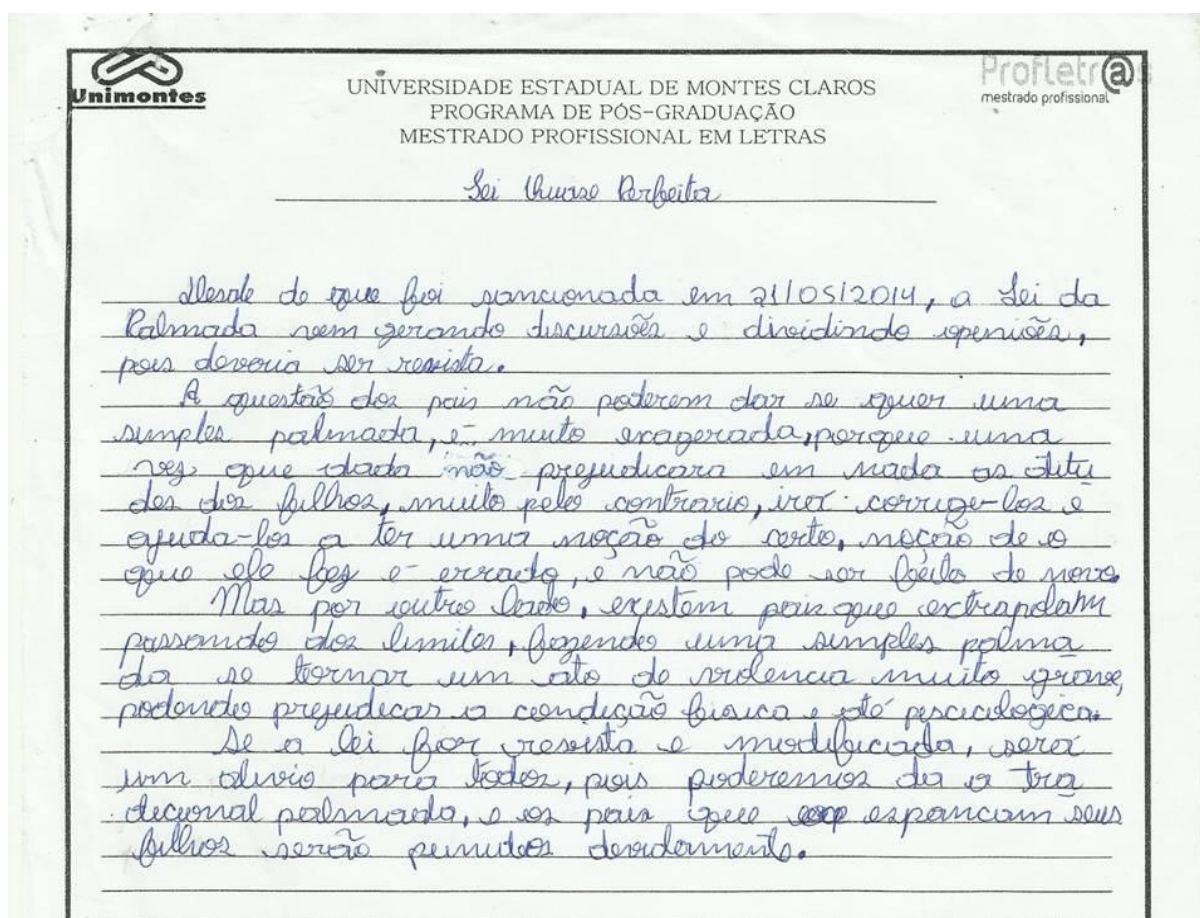 Unimontes
UNIVERSIDADE ESTADUAL DE MONTES CLAROS
PROGRAMA DE PÓS-GRADUAÇÃO
MESTRADO PROFISSIONAL EM LETRAS
ProfLetr@s
mestrado profissional
Lei Quase Perfeita
Desde de que foi sancionada em 21/05/2014, a Lei da
Palmada vem gerando discursões e dividindo openiões,
pois deveria ser revista.
A questão dos pais não poderem dar se quer uma
simples palmada, é muito exagerada, porque uma
vez que dada não prejudicara em nada as atitu
des dos filhos, muito pelo contrario, irá corrige-los e
ajuda-los a ter uma noção do certo, noção de o
que ele fez é errado, e não pode ser feito de novo.
Mas por outro lado, existem pais que extrapolam
passando dos limites, fazendo uma simples palma
da se tornar um ato de violencia muito grave,
podendo prejudicar a condição fisica e até pscicologica.
Se a lei for revista e modificada, será
um alivio para todos, pois poderemos da a tra
dicional palmada, e os pais que espancam seus
filhos serão punidos devidamente.